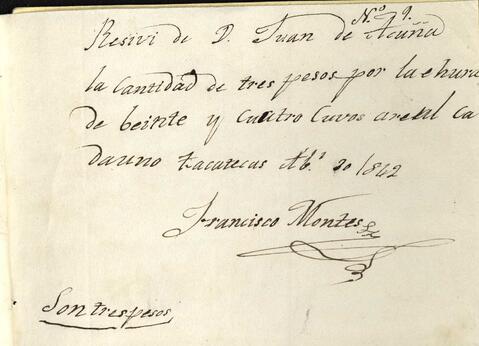 N.º 9.
Resivi de D. Juan de Acuña
la Cantidad de tres pesos por la echura
de beinte y Cuatro Cuvos a real ca
dauno Zacatecas Ab.l 20 1842
Francisco Montes
Son tres pesos,